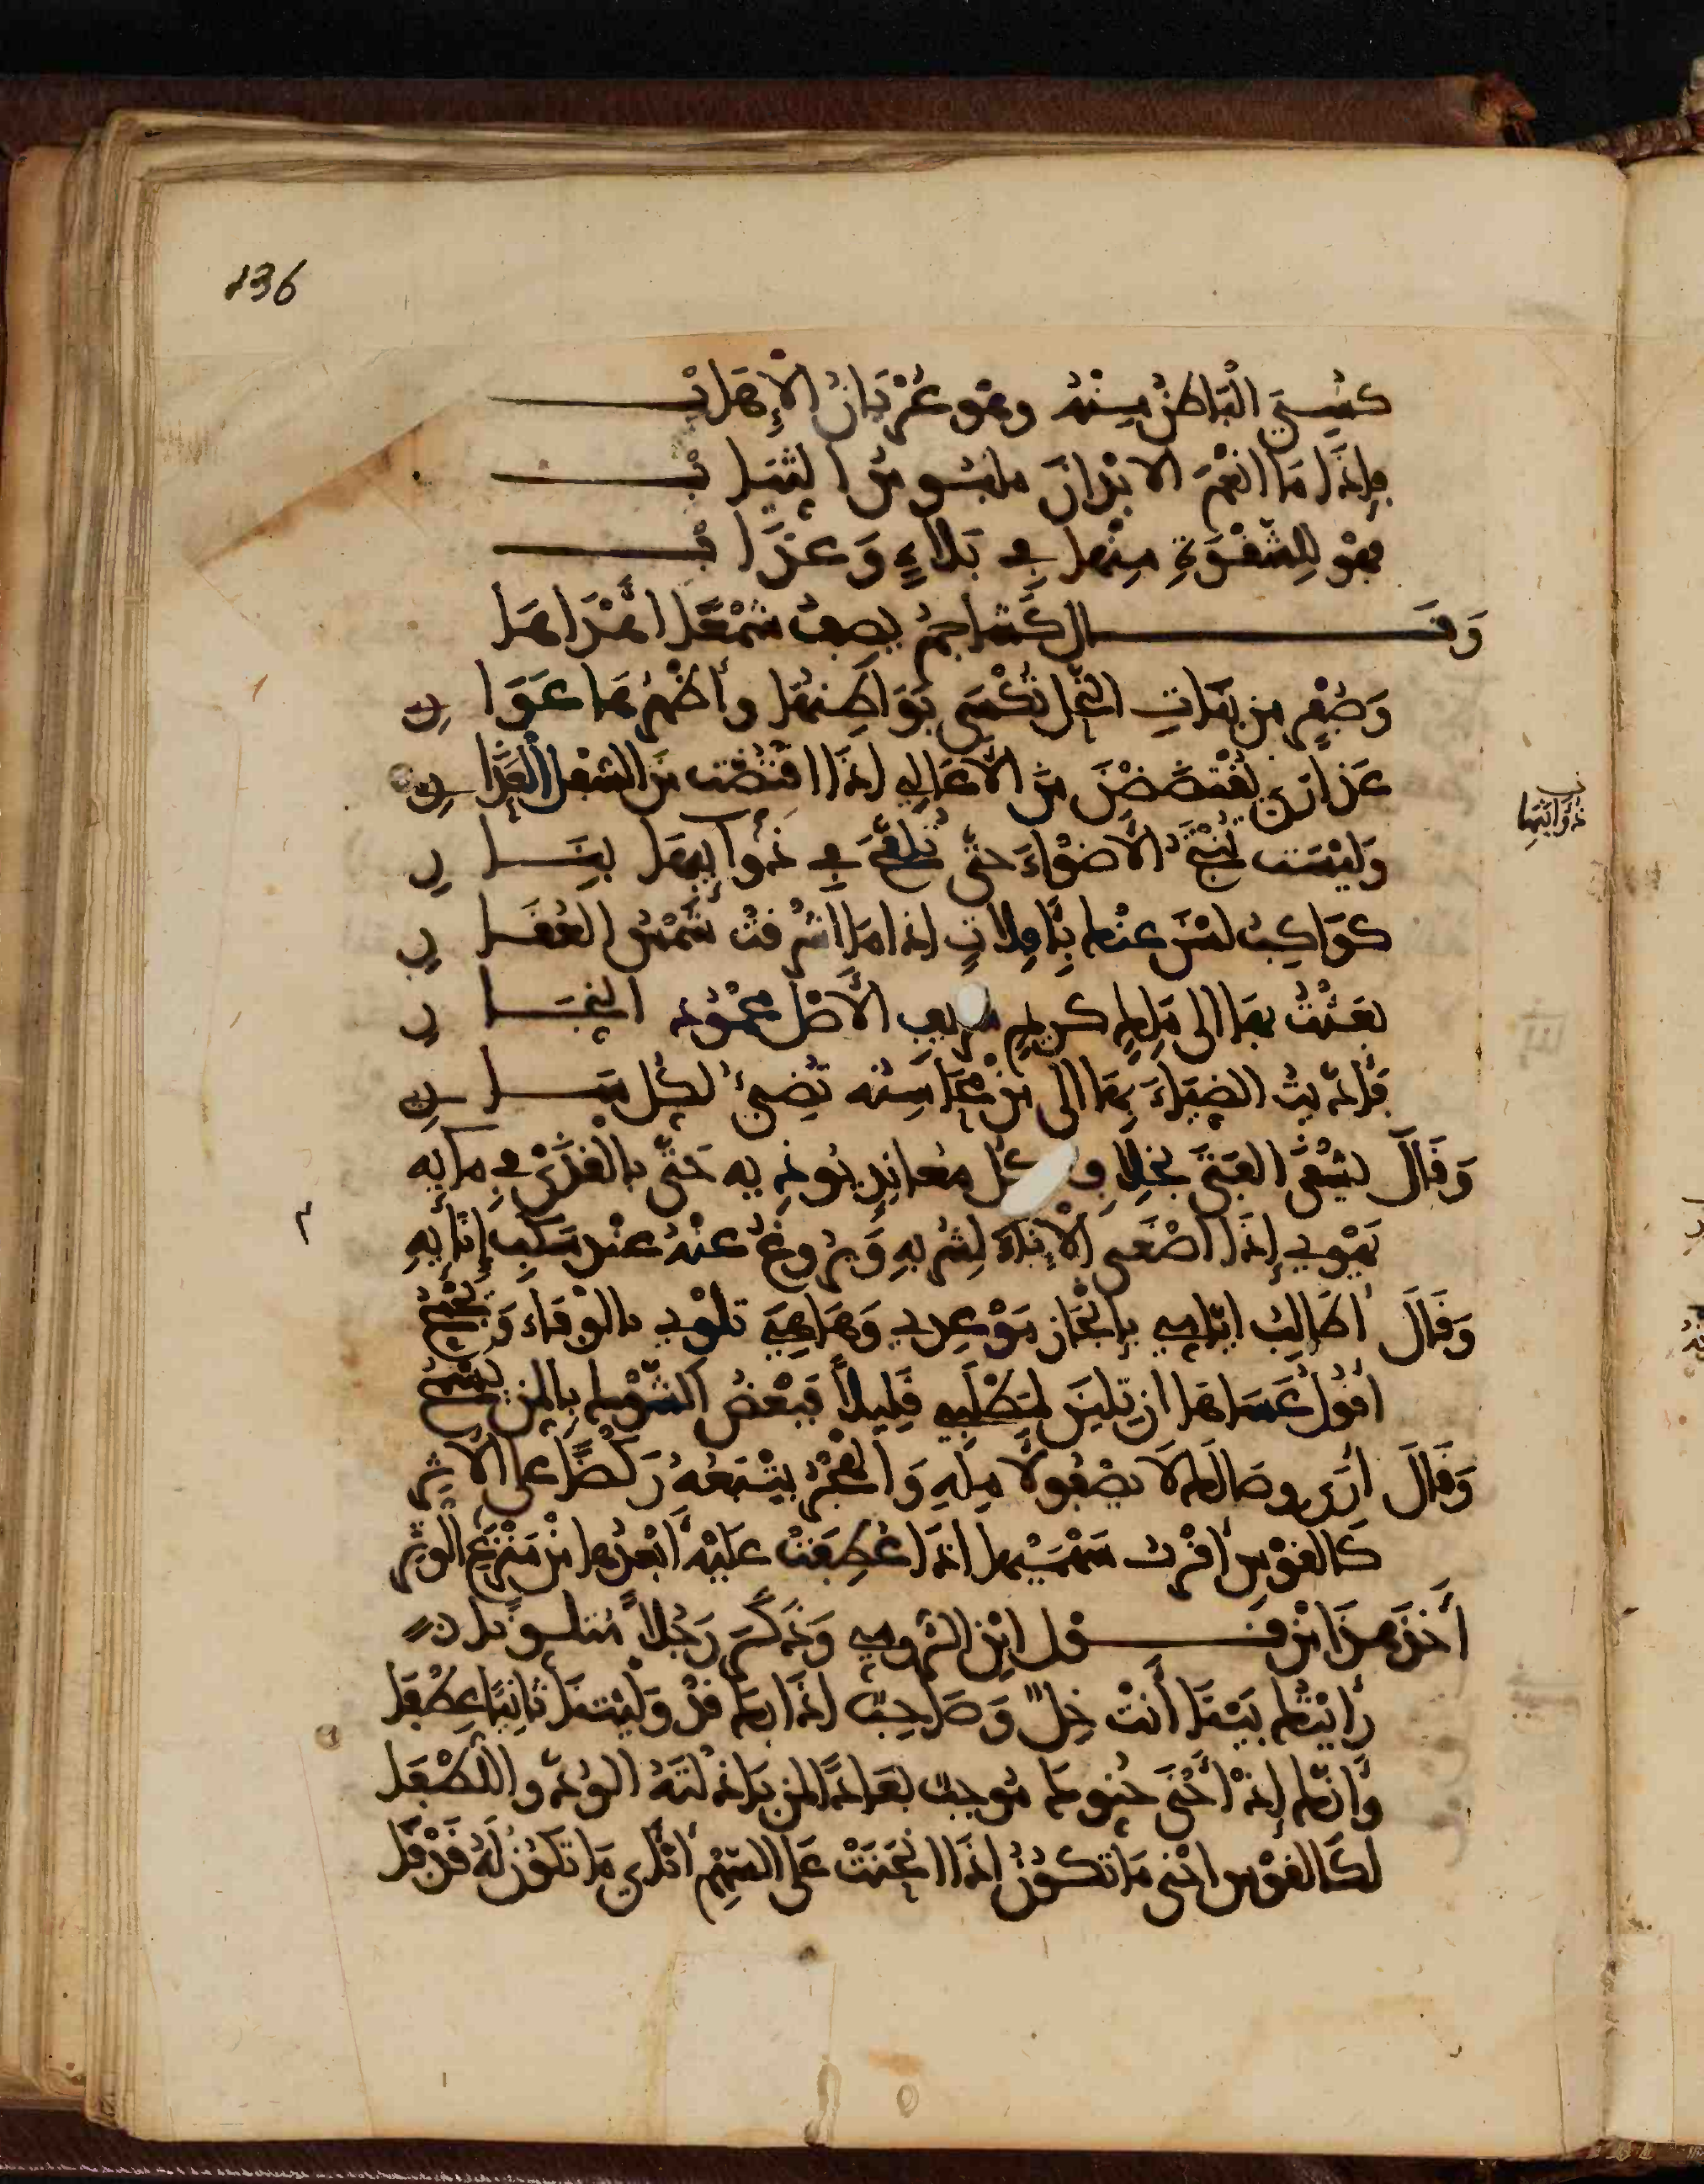 136
كُسِيَ الْبَاطِنُ مِنْهُ وهْو عُرْيَانُ الْإِهَابْ
فإذَا مَا انْعَمَ الابْدَانَ ملبُوسُ الثيَابْ
فهْو لِلشقْوَةِ مِنْها في بَلاءٍ وَعَذَابْ
وَقَال كُشاجِمُ يصِفُ شمْعًا اهْدَاهَا
وَصُفْرٍ من بَنَاتِ النَّحْل تُكْسَى بَوَاطِنُهَا وأظْهُرُهَا عَوَارِي
عَذارَى يُفْتَضَضْنَ مِنَ الأَعَالِي إذَا افتُضّت من السُّفْل الْعَذَارِي
ذَوَائِبِهَا
وَليْسَت تُنْتِجُ الأضْوَاءَ حتّى تُلَقَّحَ في ذُوَايبهَا بنَارِ
كَوَاكِبُ لسْنَ عنْكَ بِآفِلاتٍ إذا مَا اشْرقتْ شَمْسُ العُقَارِ
بعَثْتُ بهَا إلى مَلِكٍ كريمٍ شريف الأصْل محْمُود النِّجَارِ
فأهْدَيْتُ الضيَاءَ بِهَا إلى مَنْ محَاسِنُه تُضِيءُ لكُل سَارِي
وَقَالَ يَشْقَى الفَتَى بخِلافِ كُل معاندٍ يُوذيه حَتَّى بالْقَذَى في مايه
يَهْوِي إذَا اصْغَى الإنَاءَ لِشُرْبِهِ وَيرُوغُ عَنْهُ عنْدَ سَكْبِ إنَائِهِ
وَقَالَ أطَالِبُ أيّامي بإنْجَازِ مَوْعِدِي وَهَا هِيَ تلْوي بالوَفَاءِ وَتجْمَحُ
اقُولُ عَسَاهَا ان تلِينَ لمَطْلَبِي قَلِيلاً فبَعْضُ الشَّوْكِ بالمَنِّ يسْمَحُ
وَقَالَ ارَى وصَالَكَ لا يصْفُو لآمِلِهِ وَالْهَجْرُ يتْبَعُهُ رَكْضًا على الأثَرِ
كَالقَوْسِ اقْرَبُ سَهْمَيْها اذَا عُطِفَتْ عَلَيْهِ أبْعَدُها مِنْ مَنْزَعِ الوتَرِ
أَخَذَ هذَا مِنْ قَول ابْنِ الرُّومِي وَذَكَرَ رَجُلاً مُتلوِّنا
رَأيْتُكَ بَيْنَا أَنتَ خِلٌّ وَصَاحِبٌ إذَا بِكَ قدْ وَلّيْتنَا ثانِيًا عِطْفَا
وَأنَّكَ إذْ أحْنَى حُنُوكَ مُوجِبٌ بعَادًا لمن بَادَلتَهُ الوُدَّ واللطْفَا
لكَالقَوْس احْنَى مَا تكُونُ إذَا انْحَنَتْ عَلى السَّهْمِ أنْأى مَا تكُونُ لَهُ قَذْفَا